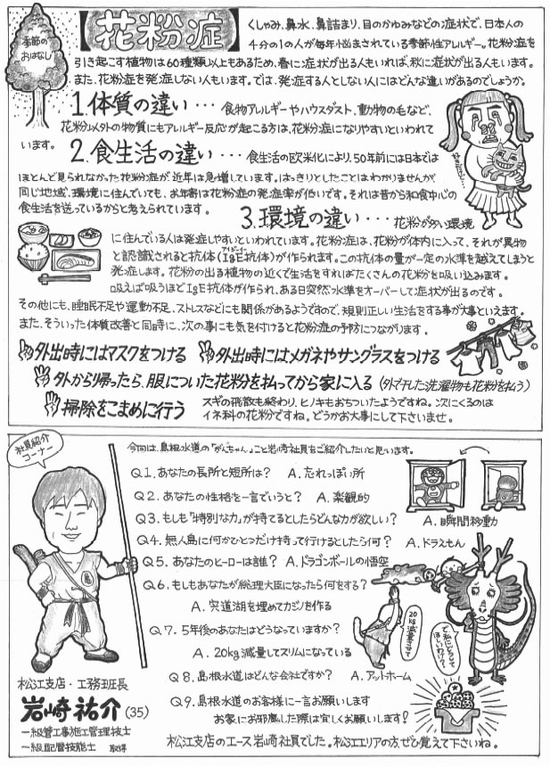 季節の
おはなし
花粉症
くしゃみ、鼻水、鼻詰まり、目のかゆみなどの症状で、日本人の
4分の1の人が毎年悩まされている季節性アレルギー。花粉症を
引き起こす植物は60種類以上もあるため、春に症状が出る人もいれば、秋に症状が出る人もいます。
また、花粉症を発症しない人もいます。では、発症する人としない人にはどんな違いがあるのでしょうか。
1.体質の違い・・・ 食物アレルギーやハウスダスト、動物の毛など、
花粉以外の物質にもアレルギー反応が起こる方は、花粉症になりやすいといわれて
います。
2.食生活の違い・・・ 食生活の欧米化により、50年前には日本では
ほとんど見られなかった花粉症が近年は急増しています。はっきりとしたことはわかりませんが、
同じ地域、環境に住んでいても、お年寄は花粉症の発症率が低いです。それは昔から和食中心の
食生活を送っているからと考えられています。
3.環境の違い・・・ 花粉が多い環境
に住んでいる人は発症しやすいといわれています。花粉症は、花粉が体内に入って、それが異物
と認識されると抗体(IgE抗体)が作られます。この抗体の量が一定の水準を越えてしまうと
発症します。花粉の出る植物の近くで生活をすればたくさんの花粉を吸い込みます。
吸えば吸うほどIgE抗体が作られ、ある日突然水準をオーバーして症状が出るのです。
その他にも、睡眠不足や運動不足、ストレスなどにも関係があるようですので、規則正しい生活をする事が大事といえます。
また、そういった体質改善と同時に、次の事にも気を付けると花粉症の予防につながります。
外出時にはマスクをつける 外出時にはメガネやサングラスをつける
外から帰ったら、服についた花粉を払ってから家に入る(外で干した洗濯物も花粉を払う)
掃除をこまめに行う
スギの飛散も終わり、ヒノキもおちついたようですね。次にくるのは
イネ科の花粉ですね。どうかお大事にして下さいませ。
社員紹介
コーナー
今回は、島根水道の「がんちゃん」こと岩崎社員をご紹介したいと思います。
Q1.あなたの長所と短所は? A.忘れっぽい所
Q2.あなたの性格を一言でいうと? A.楽観的
Q3.もしも“特別な力”が持てるとしたらどんな力が欲しい? A.瞬間移動
Q4.無人島に何かひとつだけ持って行けるとしたら何? A.ドラえもん
Q5.あなたのヒーローは誰? A.ドラゴンボールの悟空
Q6.もしもあなたが総理大臣になったら何をする?
A.宍道湖を埋めてカジノを作る
Q7.5年後のあなたはどうなっていますか?
A.20kg減量してスリムになっている
Q8.島根水道はどんな会社ですか? A.アットホーム
Q9.島根水道のお客様に一言お願いします
お家にお邪魔した際は宜しくお願いします!
20kg
減量させて
松江支店・工務班長
岩崎祐介(35)
一級管工事施工管理技士
一級配管技能士
松江支店のエース岩崎社員でした。松江エリアの方、ぜひ覚えて下さいね。